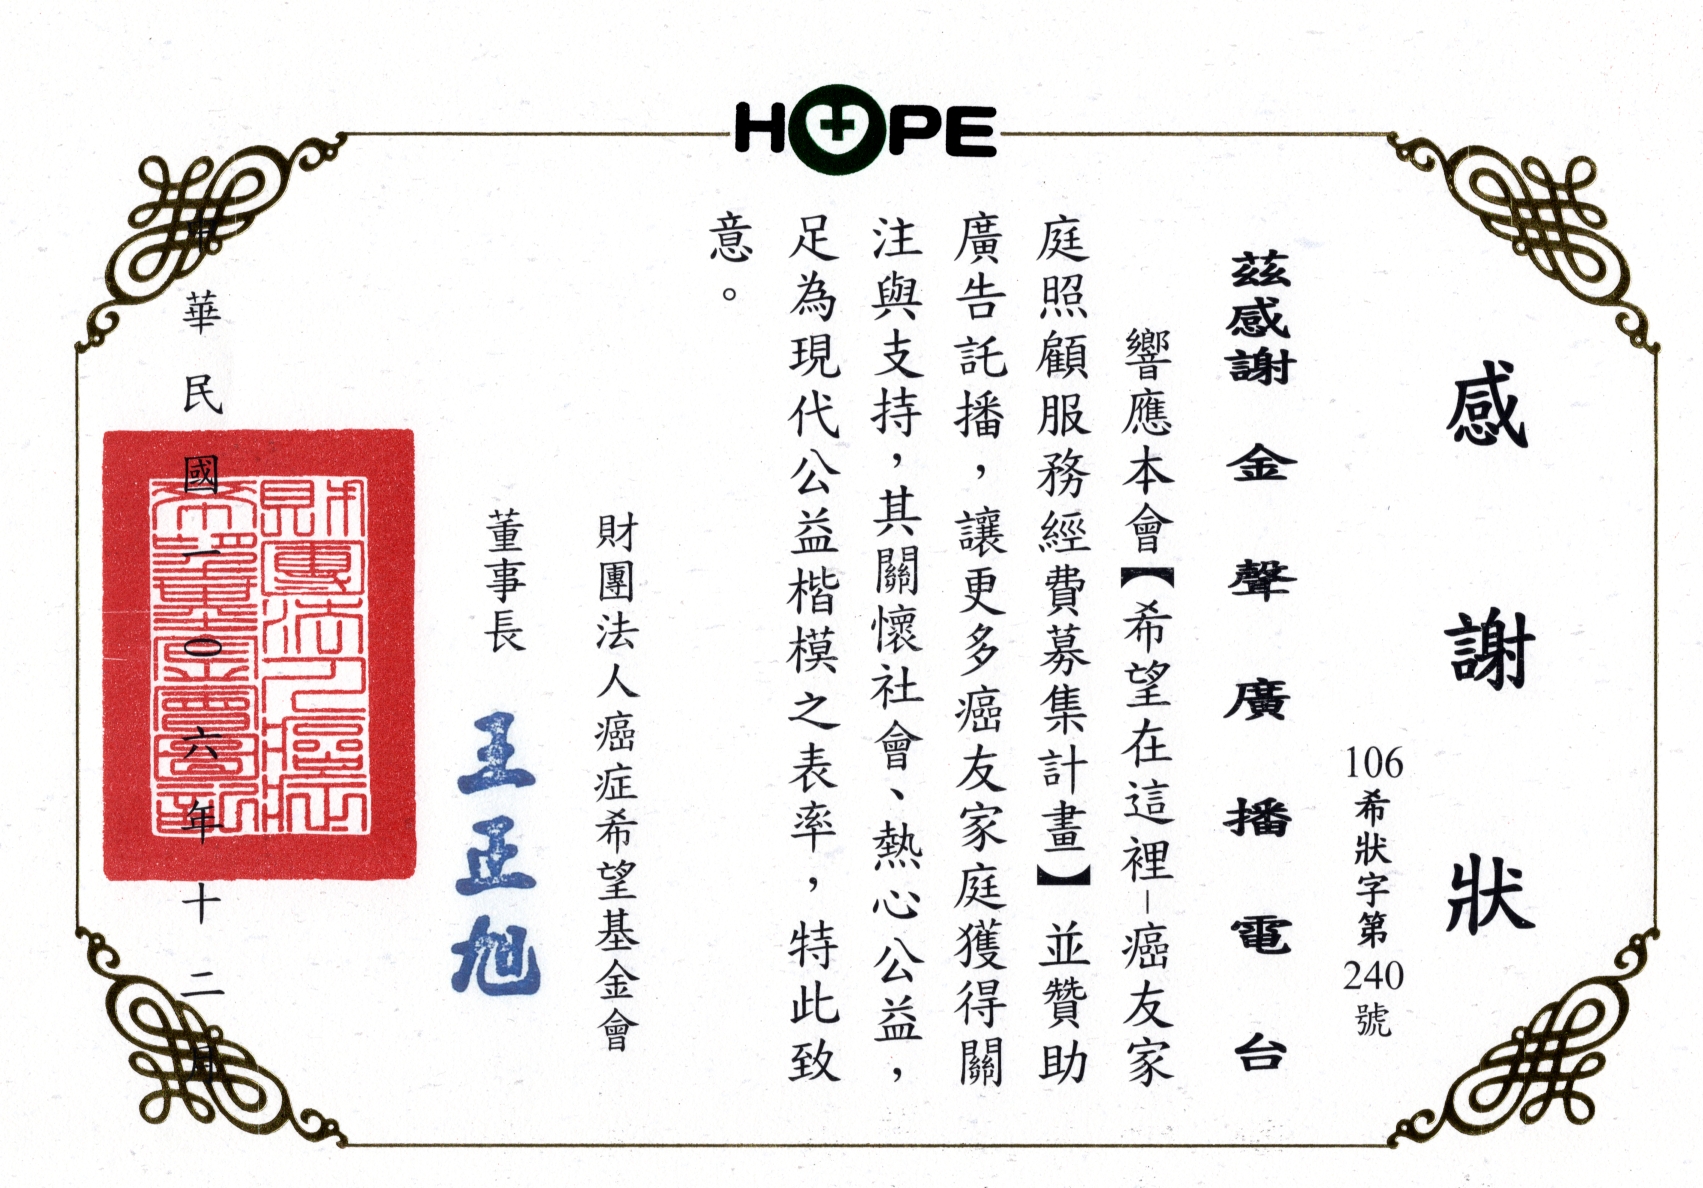 HOPE
感謝狀
106希狀字第240號
茲感謝 金聲廣播電台
響應本會【希望在這裡–癌友家
庭照顧服務經費募集計畫】並贊助
廣告託播，讓更多癌友家庭獲得關
注與支持，其關懷社會、熱心公益，
足為現代公益楷模之表率，特此致
意。
財團法人癌症希望基金會
董事長 王正旭
財團法人癌症
希望基金會印
中華民國一〇六年十二月